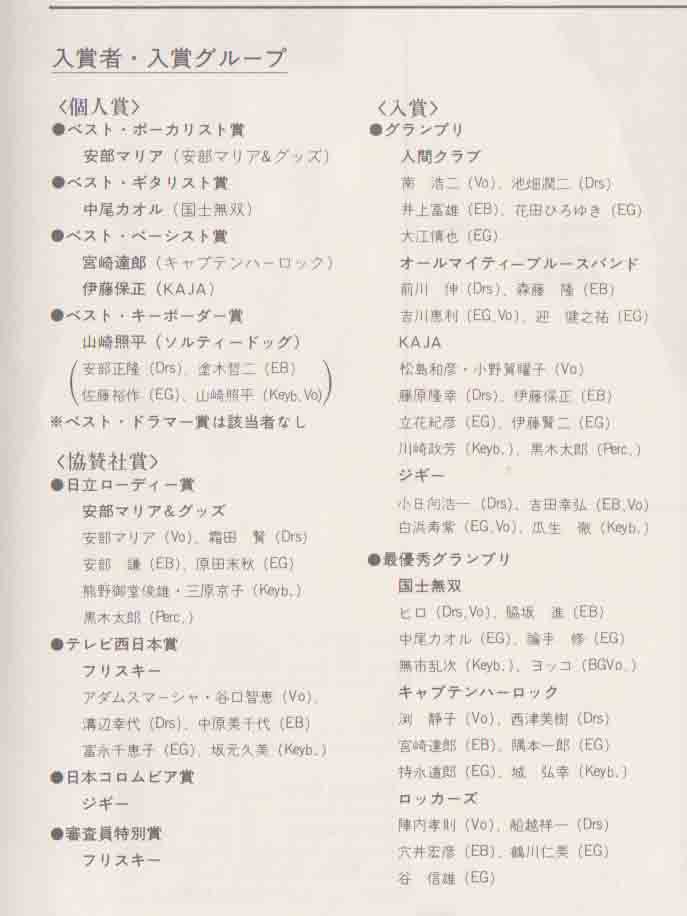 入賞者・入賞グループ
〈個人賞〉
●ベスト・ボーカリスト賞
安部マリア（安部マリア&グッズ）
●ベスト・ギタリスト賞
中尾カオル（国士無双）
●ベスト・ベーシスト賞
宮崎達郎（キャプテンハーロック）
伊藤保正（KAJA）
●ベスト・キーボーダー賞
山崎照平（ソルティードッグ）
(安部正隆（Drs）、塗木哲二（EB）
佐藤裕作（EG）、山崎照平（Keyb,Vo）)
※ベスト・ドラマー賞は該当者なし
〈協賛社賞〉
●日立ローディー賞
安部マリア&グッズ
安部マリア（Vo）、霜田　賢（Drs）
安部　謙（EB）、原田末秋（EG）
熊野御堂俊雄・三原京子（Keyb.）
黒木太郎（Perc.）
●テレビ西日本賞
フリスキー
アダムスマーシャ・谷口智恵（Vo）、
溝辺幸代（Drs）、中原美千代（EB）
富永千恵子（EG）、坂元久美（Keyb.）
●日本コロムビア賞
ジギー
●審査員特別賞
フリスキー
〈入賞〉
●グランプリ
人間クラブ
南　浩二（Vo）、池畑潤二（Drs）
井上富雄（EB）、花田ひろゆき（EG）
大江慎也（EG）
オールマイティーブルースバンド
前川　伸（Drs）、森藤　隆（EB）
吉川恵利（EG,Vo）、迎　健之祐（EG）
KAJA
松島和彦・小野賀曜子（Vo）
藤原隆幸（Drs）、伊藤保正（EB）
立花紀彦（EG）、伊藤賢二（EG）
川崎政芳（Keyb.）、黒木太郎（Perc.）
ジギー
小日向浩一（Drs）、吉田幸弘（EB,Vo）
白浜寿紫（EG,Vo）、瓜生　徹（Keyb.）
●最優秀グランプリ
国士無双
ヒロ（Drs,Vo）、脇坂　進（EB）
中尾カオル（EG）、論手　修（EG）
無市乱次（Keyb.）、ヨッコ（BGVo.）
キャプテンハーロック
渕　静子（Vo）、西津美樹（Drs）
宮崎達郎（EB）、隅本一郎（EG）
持永道郎（EG）、城　弘幸（Keyb.）
ロッカーズ
陣内孝則（Vo）、船越祥一（Drs）
穴井宏彦（EB）、鶴川仁美（EG）
谷　信雄（EG）